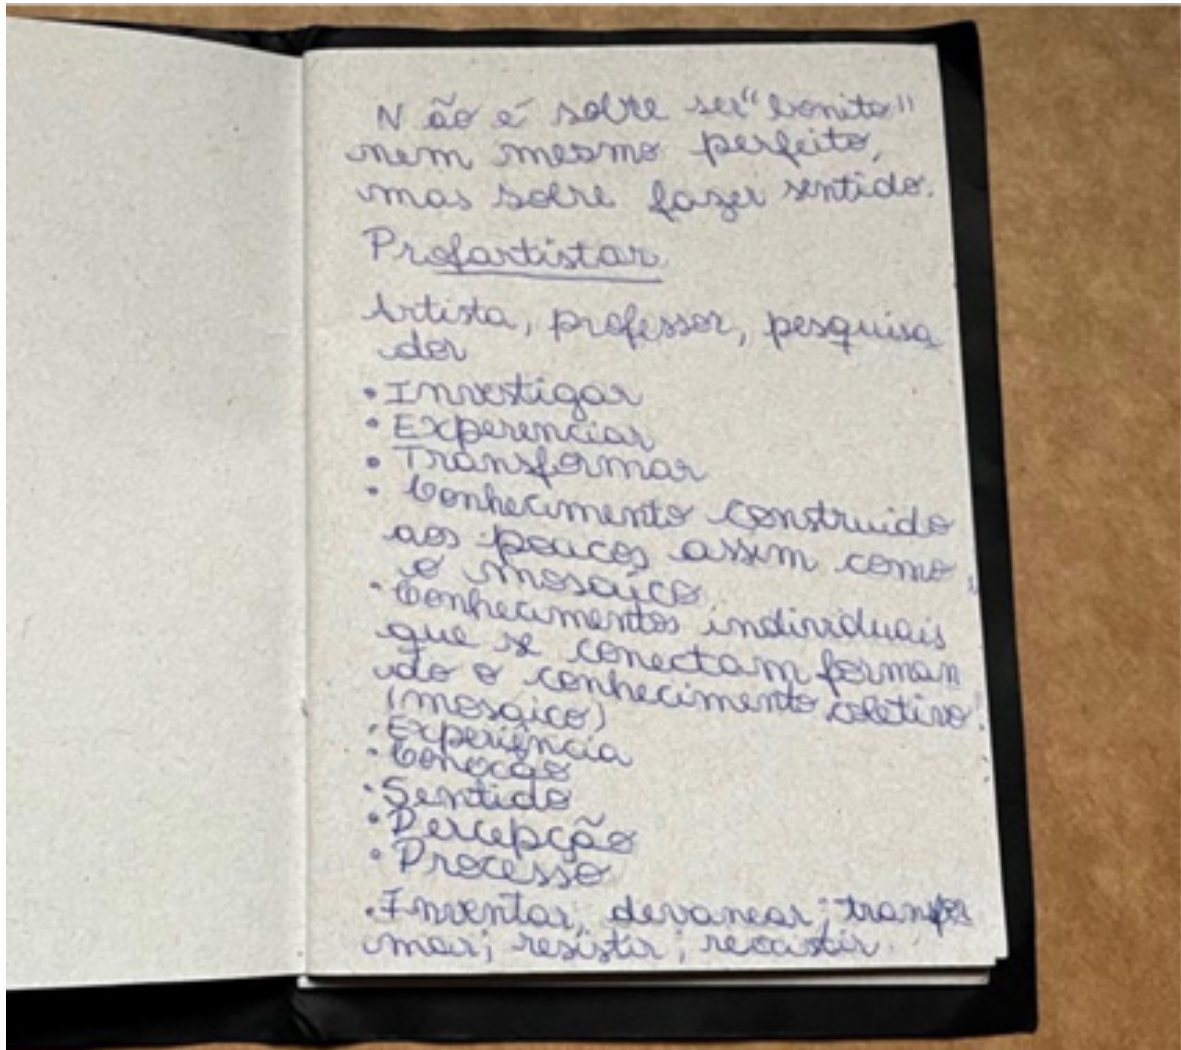 Não é sobre ser "bonito"
nem mesmo perfeito,
mas sobre fazer sentido.
Profartistar
Artista, professor, pesquisa
dor
• Investigar
• Experenciar
• Transformar
• Conhecimento construido
aos poucos assim como
o mosaico
• Conhecimentos individuais
que se conectam forman
do o conhecimento coletivo.
(mosaico)
• Experiência
•
• Sentido
• Percepção
• Processo
• Inventar; devanear; transfor
mar; resistir;